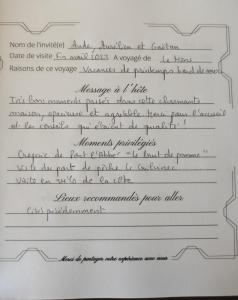 Nom de l'invité(e) Aude, Aurélien et Gaëtan
Date de visite Fin avril 2023 A voyagé de Le Mans
Raisons de ce voyage Vacances de printemps bord de mer
Message à l'hôte
Très bons moments passés dans cette charmante
maison, spacieuse et agréable tenue pour l'accueil
et les conseils qui étaient de qualité !
Moments privilégiés
Crêperie de Pont l'Abbé "le bruit de pomme"
Visite du port de pêche Le Guilvinec
Visite en vélo de la côte
Lieux recommandés pour aller
Cités précédemment
Merci de partager votre expérience avec nous